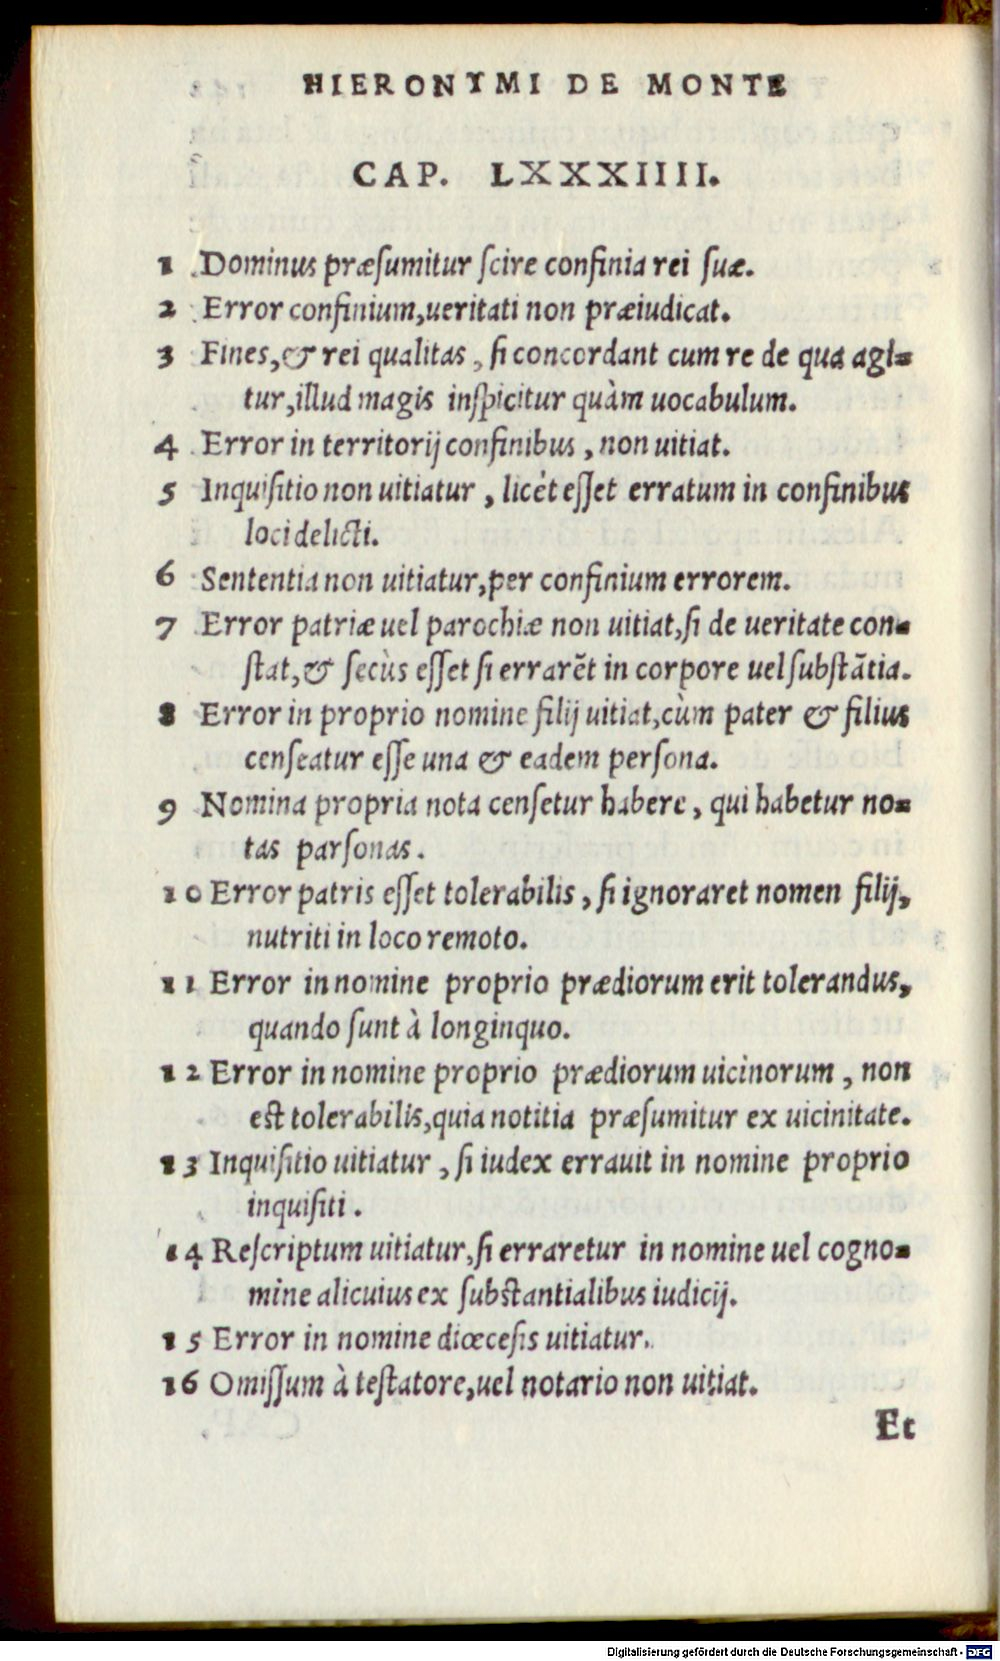 HIERONYMI DE MONTE
CAP. LXXXIIII.
1 Dominus præsumitur scire confinia rei suæ.
2 Error confinium,ueritati non præiudicat.
3 Fines,& rei qualitas, si concordant cum re de qua agi-
tur,illud magis inspicitur quàm uocabulum.
4 Error in territorij confinibus, non uitiat.
5 Inquisitio non uitiatur, licèt esset erratum in confinibus
loci delicti.
6 Sententia non uitiatur,per confinium errorem.
7 Error patriæ uel parochiæ non uitiat,si de ueritate con-
stat,& secùs esset si errarēt in corpore uel substātia.
8 Error in proprio nomine filij uitiat,cùm pater & filius
censeatur esse una & eadem persona.
9 Nomina propria nota censetur habere, qui habetur no-
tas parsonas.
10 Error patris esset tolerabilis, si ignoraret nomen filij,
nutriti in loco remoto.
11 Error in nomine proprio prædiorum erit tolerandus,
quando sunt à longinquo.
12 Error in nomine proprio prædiorum uicinorum, non
est tolerabilis,quia notitia præsumitur ex uicinitate.
13 Inquisitio uitiatur, si iudex errauit in nomine proprio
inquisiti.
14 Rescriptum uitiatur,si erraretur in nomine uel cogno-
mine alicuius ex substantialibus iudicij.
15 Error in nomine diœcesis uitiatur.
16 Omissum à testatore,uel notario non uitiat.
Et
Digitalisierung gefördert durch die Deutsche Forschungsgemeinschaft - DFG